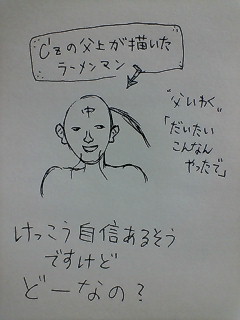 C'zの父上が描いた
ラーメンマン
中
"父いわく"
「だいたい
こんなん
やったで」
けっこう自信あるそう
ですけど
どーなの？